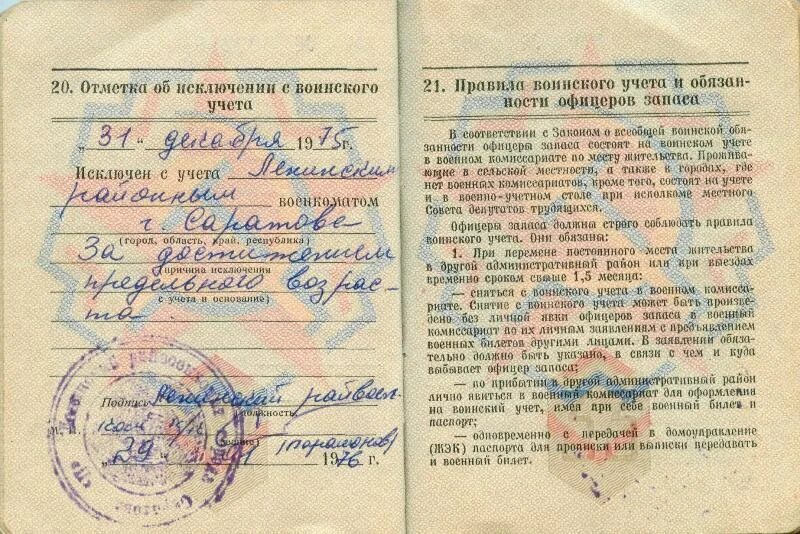 20. Отметка об исключении с воинского
учета
„31“ декабря 1975г.
Исключен с учета Ленинским
районным военкоматом
г. Саратова
(город, область, край, республика)
За достижением
(причина исключения
предельного возрас-
с учета и основание)
та.
Подпись Ленинский райвоен-
должность,
ком
М. П.
(Парамонов)
„29“ 1976 г.
21. Правила воинского учета и обязан-
ности офицеров запаса
В соответствии с Законом о всеобщей воинской обя-
занности офицеры запаса состоят на воинском учете
в военном комиссариате по месту жительства. Прожива-
ющие в сельской местности, а также в городах, где
нет военных комиссариатов, кроме того, состоят на учете
и в военно-учетном столе при исполкоме местного
Совета депутатов трудящихся.
Офицеры запаса должны строго соблюдать правила
воинского учета. Они обязаны:
1. При перемене постоянного места жительства
в другой административный район или при выездах
временно сроком свыше 1,5 месяца:
— сняться с воинского учета в военном комисса-
риате. Снятие с воинского учета может быть произве-
дено без личной явки офицеров запаса в военный
комиссариат по их личным заявлениям с предъявлением
военных билетов другими лицами. В заявлении обяза-
тельно должно быть указано, в связи с чем и куда
выбывает офицер запаса;
— по прибытии в другой административный район
лично явиться в военный комиссариат для оформления
на воинский учет, имея при себе военный билет и
паспорт;
— одновременно с передачей в домоуправление
(ЖЭК) паспорта для прописки или выписки передавать
и военный билет.